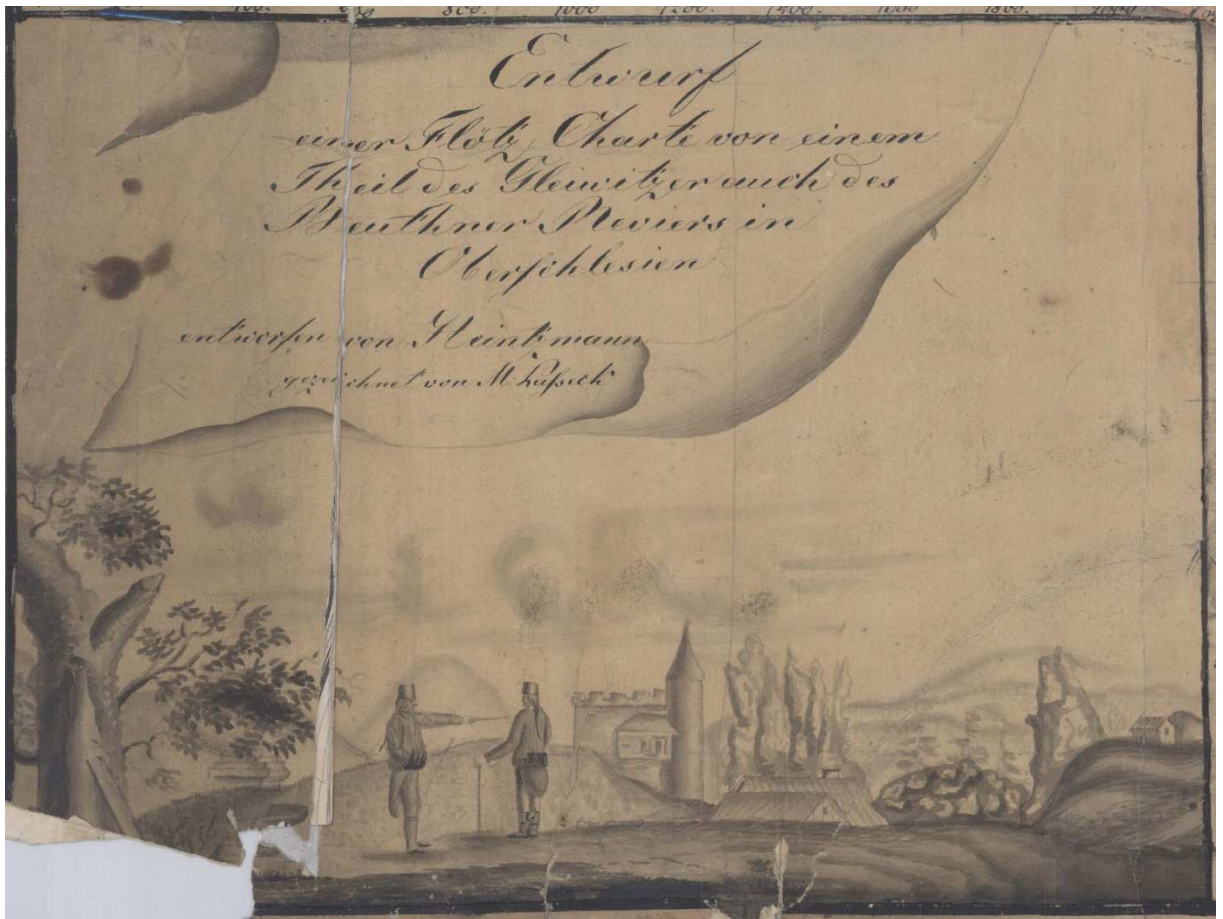 400. 600 800. 1000 1200. 1400. 1600 1800. 2000
Entwurf
einer Flötz Charte von einem
Theil des Gleiwitzer auch des
Beuthner Reviers in
Oberschlesien
entworfen von Heintzmann
gezeichnet von M